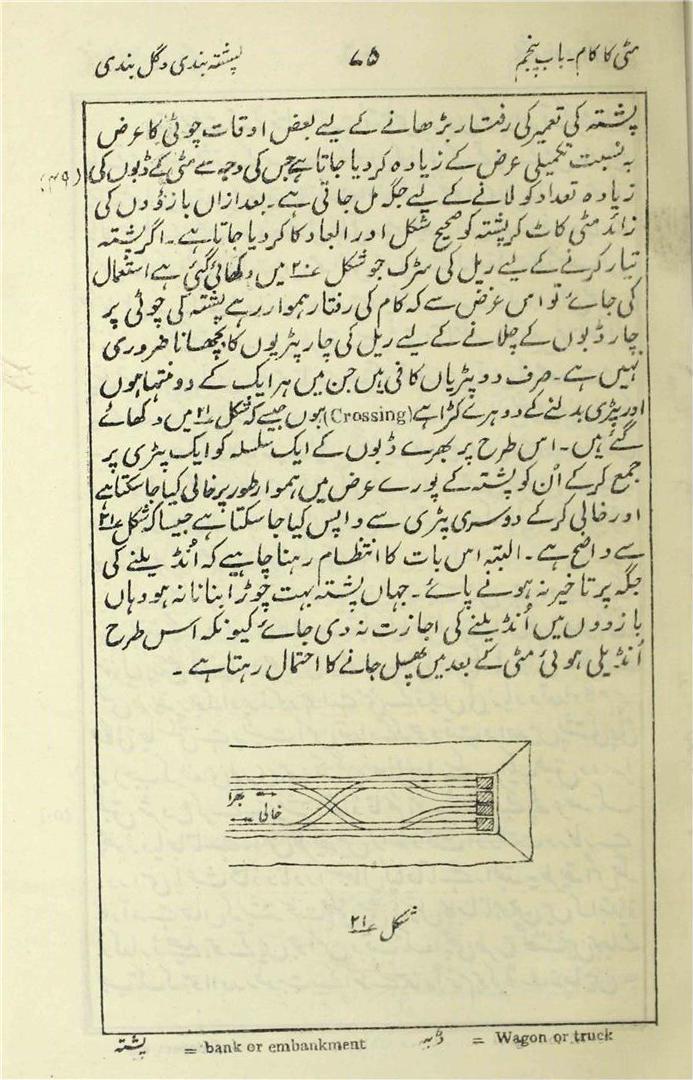 مٹی کا کام۔ باب پنجم ۷۵ پشتہ بندی و گل بندی
پشتہ کی تعمیر کی رفتار بڑھانے کے لیے بعض اوقات چوٹی کا عرض
بہ نسبت تکمیلی عرض کے زیادہ کر دیا جاتا ہے جس کی وجہ سے مٹی کے ڈبوں کی (۳۹)
زیادہ تعداد کو لانے کے لیے جگہ مل جاتی ہے۔ بعد ازاں بازوؤں کی
زائد مٹی کاٹ کر پشتہ کو صحیح شکل اور ابعاد کا کر دیا جاتا ہے۔ اگر پشتہ
تیار کرنے کے لیے ریل کی سڑک جو شکل ۲۰ میں دکھائی گئی ہے استعمال
کی جائے تو اس غرض سے کہ کام کی رفتار ہموار رہے پشتہ کی چوٹی پر
چار ڈبوں کے چلانے کے لیے ریل کی چار پٹریوں کا بچھانا ضروری
نہیں ہے۔ صرف دو پٹریاں کافی ہیں جن میں ہر ایک کے دو منتہا ہوں
اور پٹری بدلنے کے دوہرے کڑاہے (Crossing) ہوں جیسے کہ شکل ۲۱ میں دکھائے
گئے ہیں۔ اس طرح پر بھرے ڈبوں کے ایک سلسلہ کو ایک پٹری پر
جمع کر کے اُن کو پشتہ کے پورے عرض میں ہموار طور پر خالی کیا جا سکتا ہے
اور خالی کر کے دوسری پٹری سے واپس کیا جا سکتا ہے جیسا کہ شکل ۲۱
سے واضح ہے۔ البتہ اس بات کا انتظام رہنا چاہیے کہ اُنڈیلنے کی
جگہ پر تاخیر نہ ہونے پائے۔ جہاں پشتہ بہت چوڑا بنانا نہ ہو وہاں
بازووں میں اُنڈیلنے کی اجازت نہ دی جائے کیونکہ اس طرح
اُنڈیلی ہوئی مٹی کے بعد میں پھسل جانے کا احتمال رہتا ہے۔
بھرا
خالی
شکل ۲۱
پشتہ = bank or embankment ڈبہ = Wagon or truck